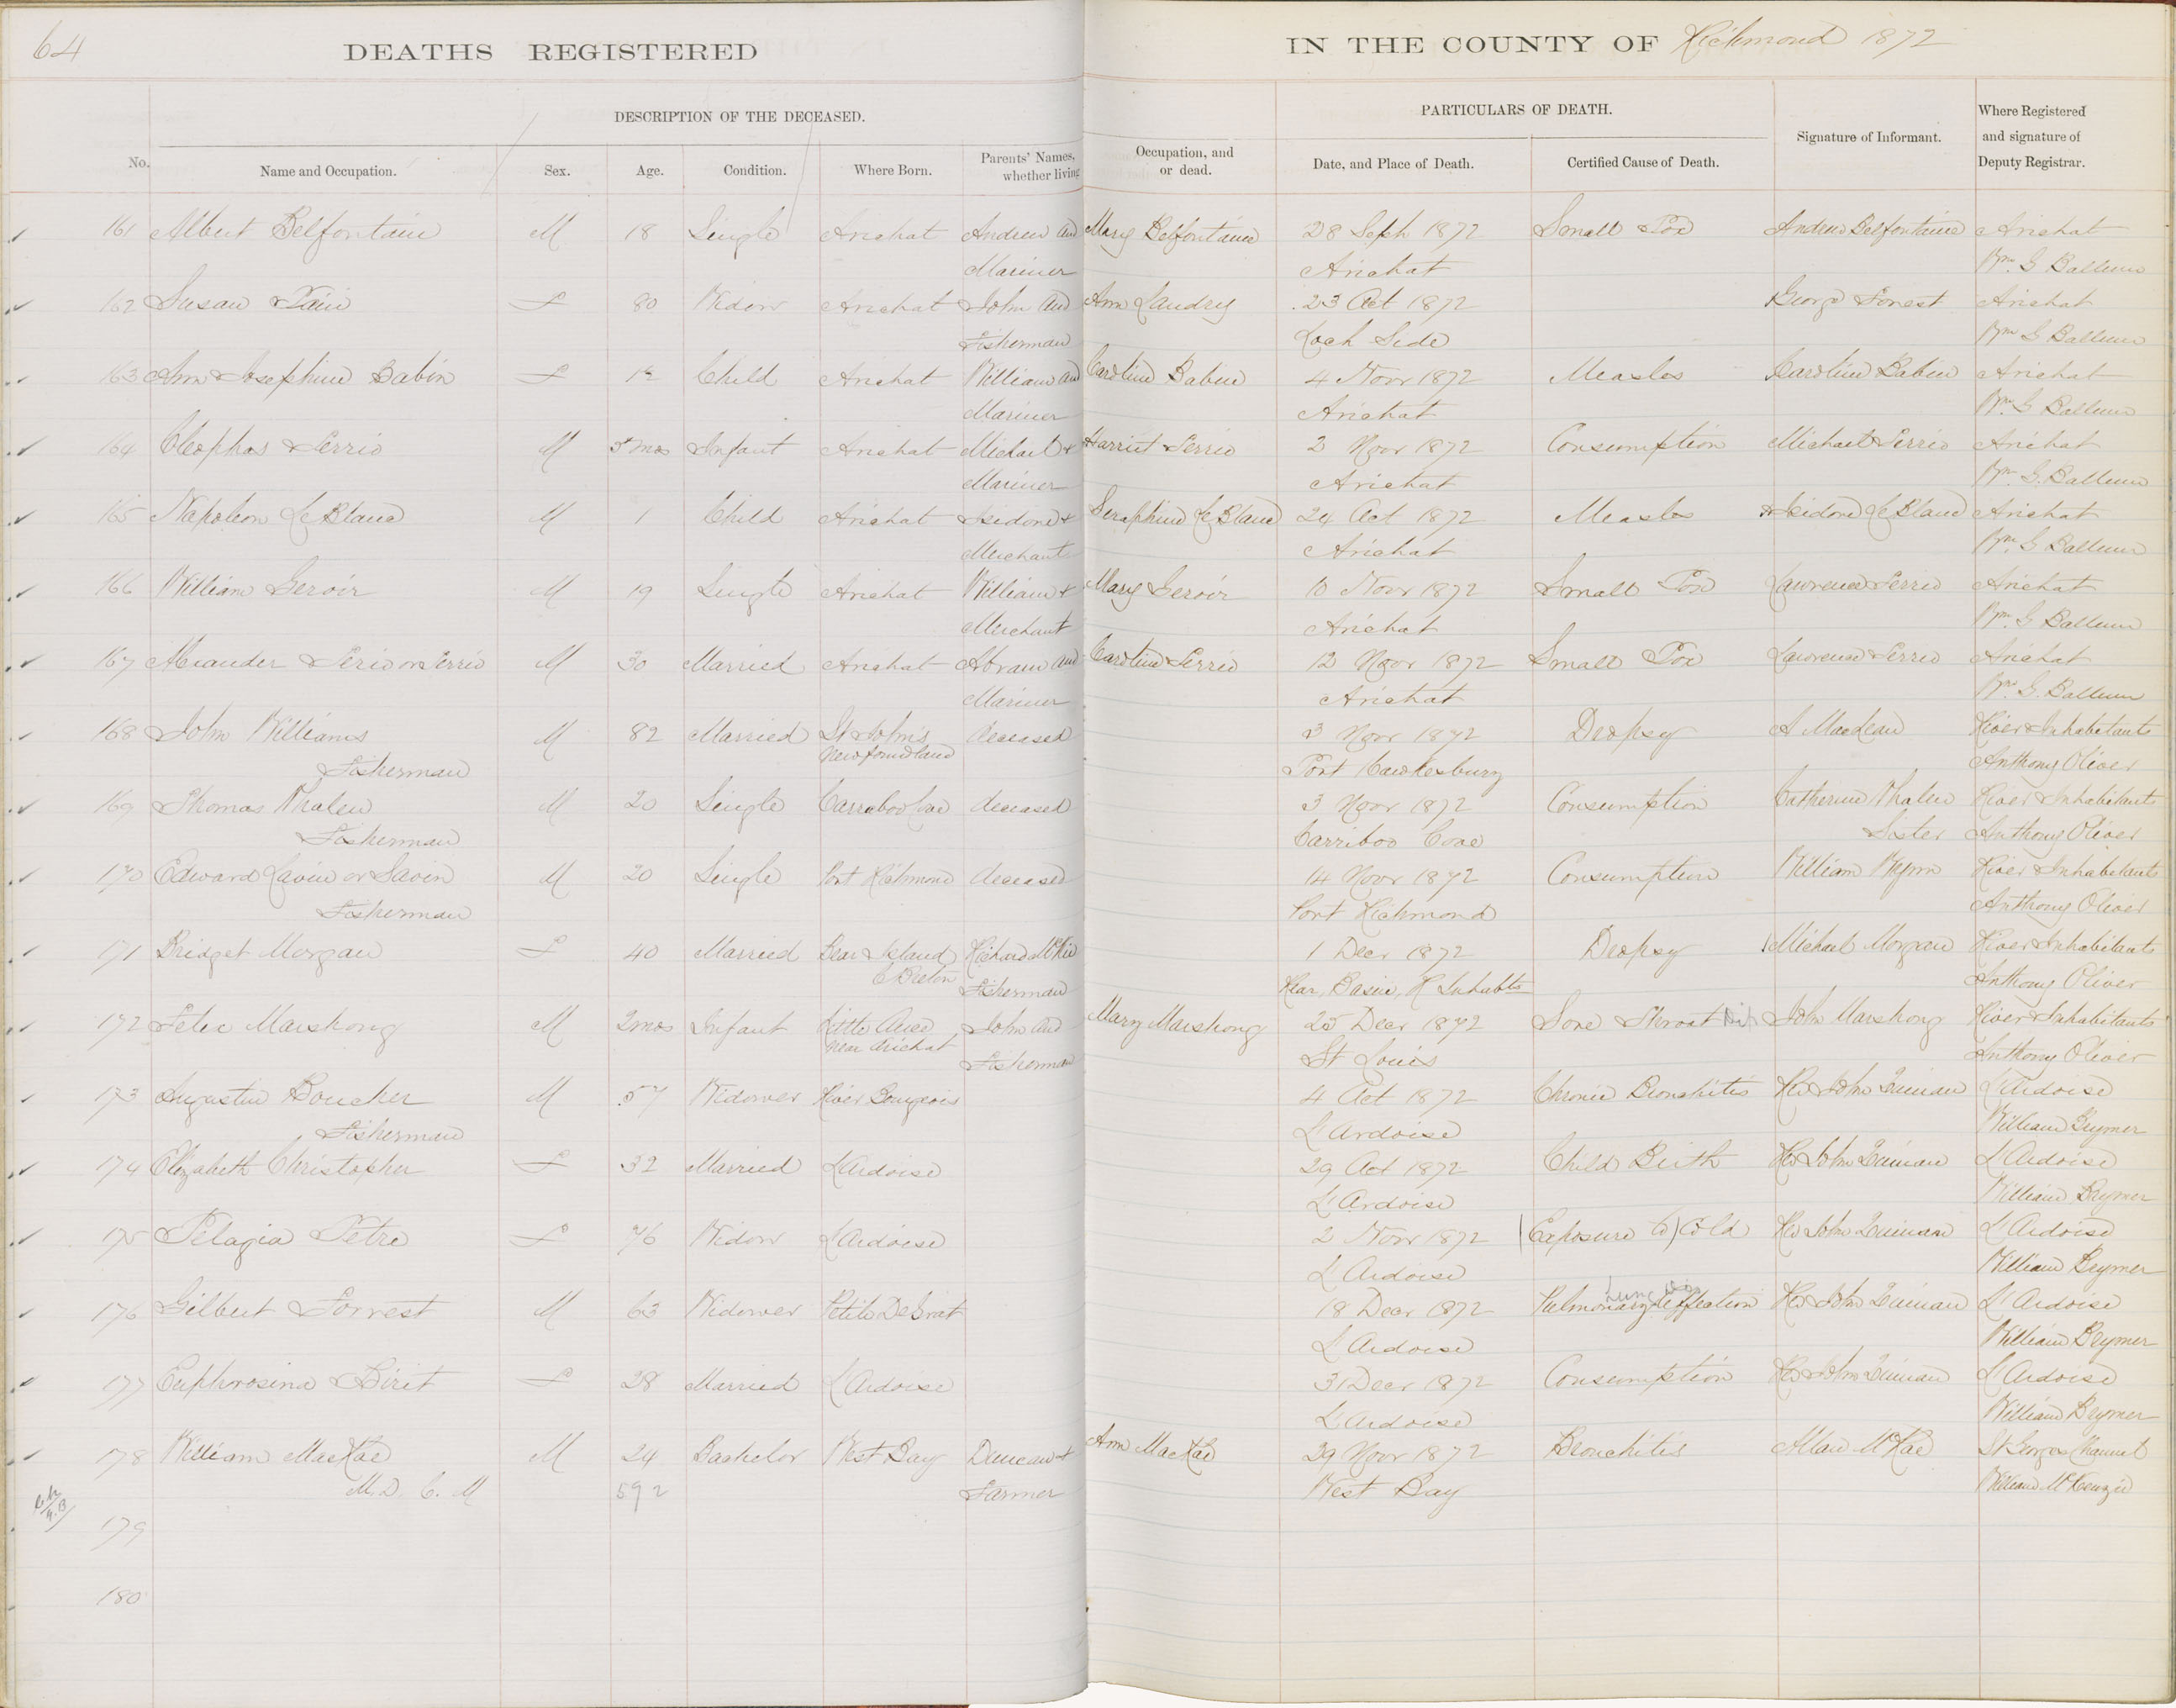 64
DEATHS REGISTERED
IN THE COUNTY OF Richmond 1872
DESCRIPTION OF THE DECEASED.
PARTICULARS OF DEATH.
No. Name and Occupation. Sex. Age. Condition. Where Born. Parents' Names, whether living Occupation, and or dead. Date, and Place of Death. Certified Cause of Death. Signature of Informant. Where Registered and signature of Deputy Registrar.
161 Albert Belfontain M 18 Single Arichat Andrew and Mary Belfontaine 28 Sept 1872 Small Pox Andrew Belfontaine Arichat
Mariner Arichat Wm. G Ballam
162 Susan F 80 Widow Arichat John and Ann Landry 23 Oct 1872 George Forrest Arichat
Fisherman Loch Side Wm G Ballam
163 Ann Josephine Babin F Child Arichat William and Caroline Babin 4 Novr 1872 Measles Caroline Babin Arichat
Mariner Arichat Wm. G Ballam
164 Cleophas Perrio M 5 mos Infant Arichat Michael + Harriet Perrio 2 Novr 1872 Consumption Michael Perrio Arichat
Mariner Arichat Wm. G. Ballam
165 Napoleon LeBlanc M 1 Child Arichat Isidore + Seraphine LeBlanc 24 Oct 1872 Measles Isidore LeBlanc Arichat
Merchant Arichat Wm. G Ballam
166 William Geroir M 19 Single Arichat William + Mary Geroir 10 Novr 1872 Small Pox Lawrence Perrio Arichat
Merchant Arichat Wm. G Ballam
167 Meander Perio or Perrio M 30 Married Arichat Abram and Caroline Perrio 12 Novr 1872 Small Pox Lawrence Perrio Arichat
Mariner Arichat Wm. G. Ballam
168 John Williams M 82 Married St John's Newfoundland deceased 3 Novr 1872 Dropsy A MacLean River Inhabitants
Fisherman Port Hawkesbury Anthony Oliver
169 Thomas Whalen M 20 Single Carraboo Cove deceased 3 Novr 1872 Consumption Catherine Whalen River Inhabitants
Fisherman Carriboo Cove Sister Anthony Oliver
170 Edward Lavin or Savin M 20 Single Port Richmond deceased 14 Novr 1872 Consumption William Wynn River Inhabitants
Fisherman Port Richmond Anthony Oliver
171 Bridget Morgan F 40 Married Bear Island C Breton Richard 1 Decr 1872 Dropsy Michael Morgan River Inhabitants
Fisherman Rear, Basin, R Inhabts Anthony Oliver
172 Peter Marshong M 2mos Infant Little Anse near Arichat John and Mary Marshong 25 Decr 1872 Sore Throat John Marshong River Inhabitants
Fisherman St Louis Anthony Oliver
173 Augustin Boucher M 57 Widower River Bourgeois 4 Oct 1872 Chronic Bronchitis Rev John Quinan L'Ardoise
Fisherman L'Ardoise William Brymer
174 Elizabeth Christopher F 32 Married L'Ardoise 29 Oct 1872 Child Birth Rev John Quinan L'Ardoise
L'Ardoise William Brymer
175 Pelagia Petre F 76 Widow L'Ardoise 2 Novr 1872 (Exposure to) Cold Rev John Quinan L'Ardoise
L'Ardoise William Brymer
176 Gilbert Forrest M 63 Widower Petite DeGrat 18 Decr 1872 Pulmonary Affection Rev John Quinan L'Ardoise
Lung Dis
L'Ardoise William Brymer
177 Euphrosina Birit F 28 Married L'Ardoise 31 Decr 1872 Consumption Rev John Quinan L'Ardoise
L'Ardoise William Brymer
178 William MacRae M 24 Bachelor West Bay Duncan + Ann MacRae 29 Novr 1872 Bronchitis Allan McRae St Georges Channel
M.D. C. M 592 Farmer West Bay William McKenzie
179
180